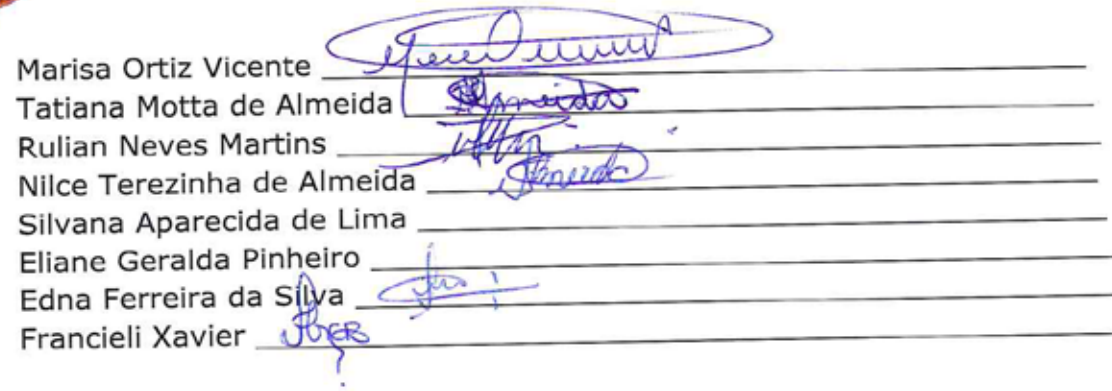 Marisa Ortiz Vicente
Tatiana Motta de Almeida Almeida
Rulian Neves Martins
Nilce Terezinha de Almeida Almeida
Silvana Aparecida de Lima
Eliane Geralda Pinheiro
Edna Ferreira da Silva
Francieli Xavier